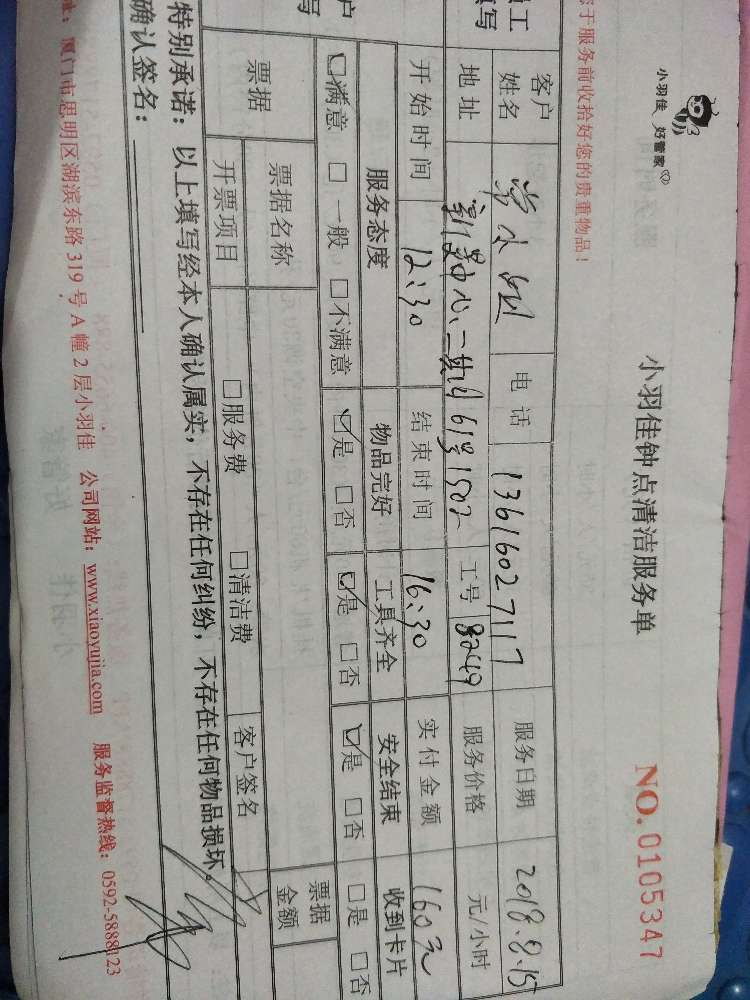 小羽佳 好管家
小羽佳钟点清洁服务单
NO. 0105347
于服务前收拾好您的贵重物品！
员工
填写
客户
姓名
电话 13616027117 服务日期 2018.8.15
地址 中心、二期 61号1502 工号 8249 服务价格 元/小时
开始时间 12:30 结束时间 16:30 实付金额 160元
户
写
服务态度 物品完好 工具齐全 安全结束 收到卡片
☑满意 □一般 □不满意 ☑是 □否 ☑是 □否 ☑是 □否 □是 □否
票据 票据名称 票据
金额
开票项目 □服务费 □清洁费 客户签名
特别承诺：以上填写经本人确认属实，不存在任何纠纷，不存在任何物品损坏。
确认签名：
址：厦门市思明区湖滨东路 319 号 A 幢 2 层小羽佳 公司网站：www.xiaoyujia.com 服务监督热线：0592-5888123